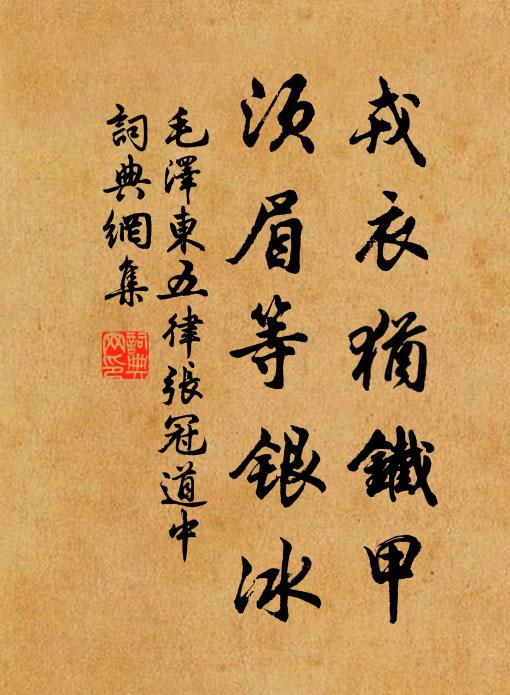 戎衣猶鐵甲
須眉等銀冰
毛澤東五律張冠道中
詞典網集
詞典網印